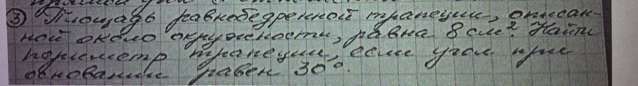 ③ Площадь равнобедренной трапеции, описан-
ной около окружности, равна 8 см². Найти
периметр трапеции, если угол при
основании равен 30°.